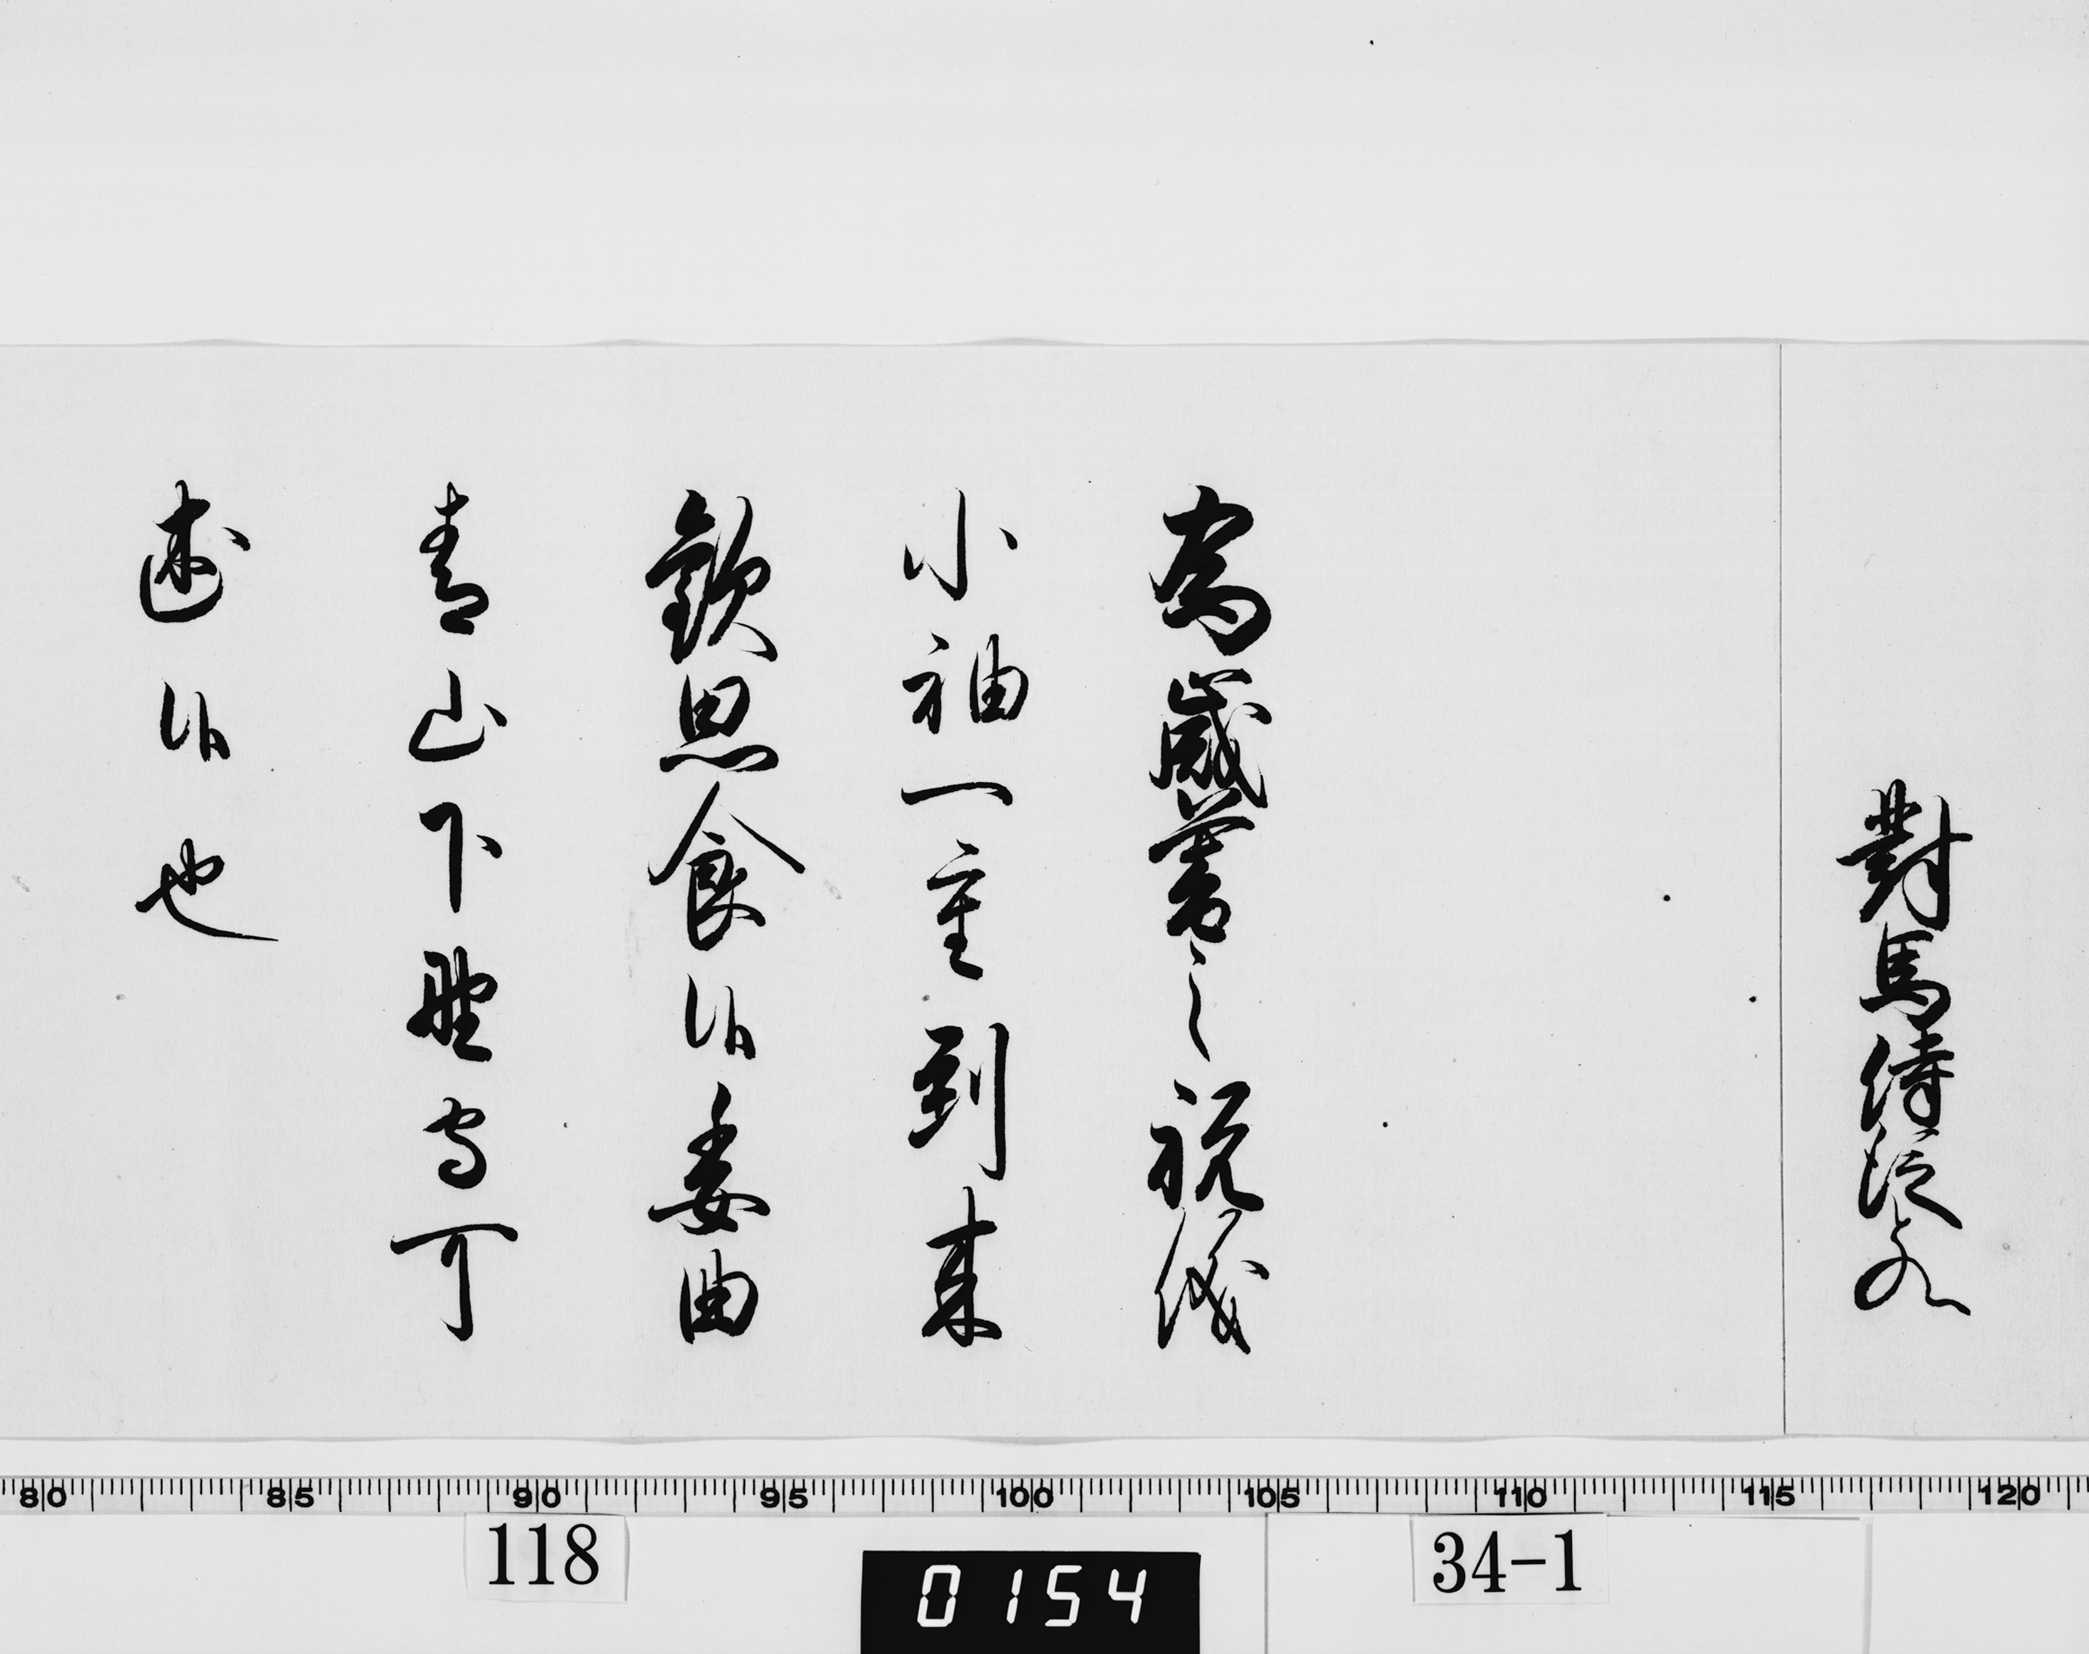 對馬侍従とのへ
為歳暮之祝儀
小袖一重到来
歓思食候委曲
青山下野守可
述候也
80 85 90 95 100 105 110 115 120
118
0154
34-1